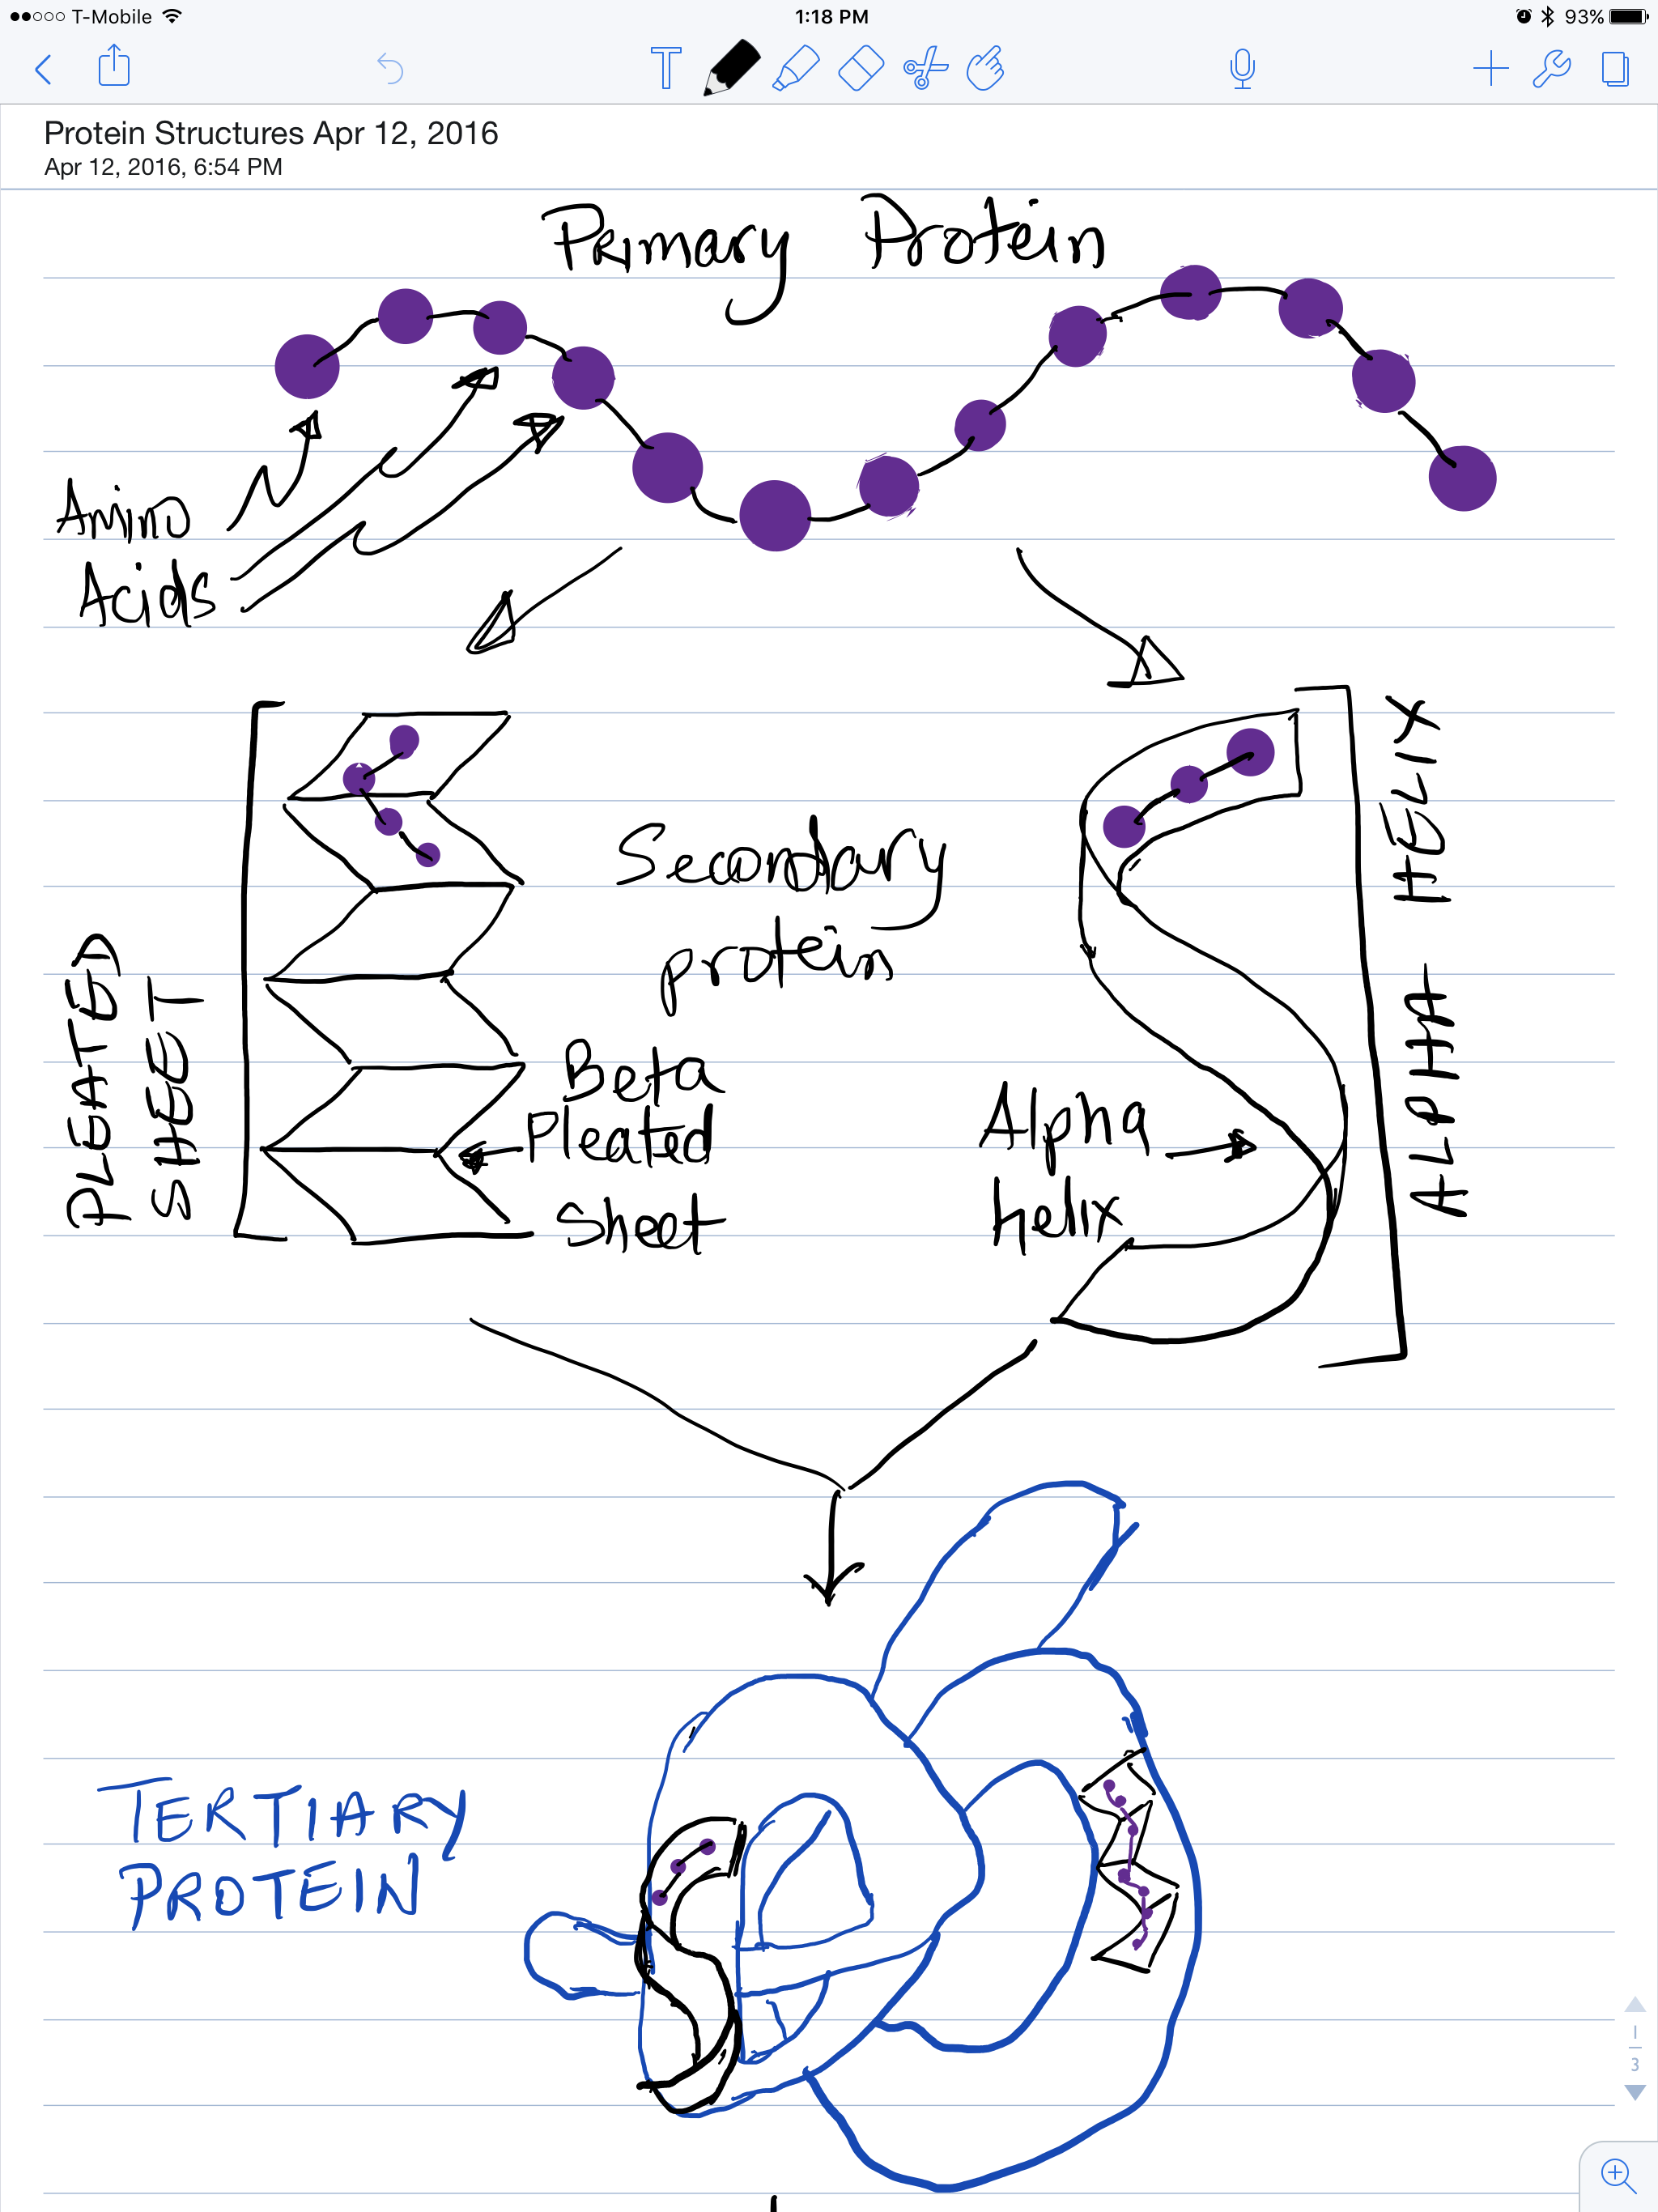 T-Mobile 1:18 PM 93%
T
Protein Structures Apr 12, 2016
Apr 12, 2016, 6:54 PM
Primary Protein
Amino
Acids
PLEATED
SHEET
Secondary
protein
Beta
Pleated
Sheet
Alpha
helix
ALPHA HELIX
TERTIARY
PROTEIN
1
3